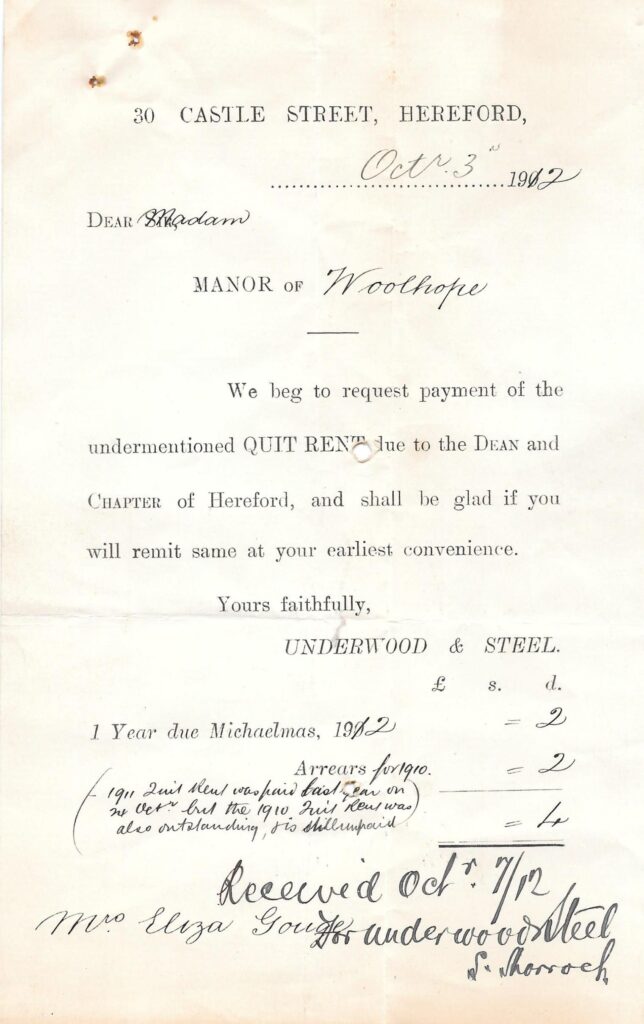 30 CASTLE STREET, HEREFORD,
Octr. 3rd 1912
DEAR Madam
MANOR OF Woolhope
We beg to request payment of the
undermentioned QUIT RENT due to the DEAN and
CHAPTER of Hereford, and shall be glad if you
will remit same at your earliest convenience.
Yours faithfully,
UNDERWOOD & STEEL.
£ s. d.
1 Year due Michaelmas, 1912 = 2
Arrears for 1910. = 2
(- 1911 Quit Rent was paid last year on
Octr but the 1910 Quit Rent was
also outstanding, & is still unpaid)
= 4
Received Octr. 7/12
Mrs Eliza Gouge
For Underwood & Steel
S. Shorrock